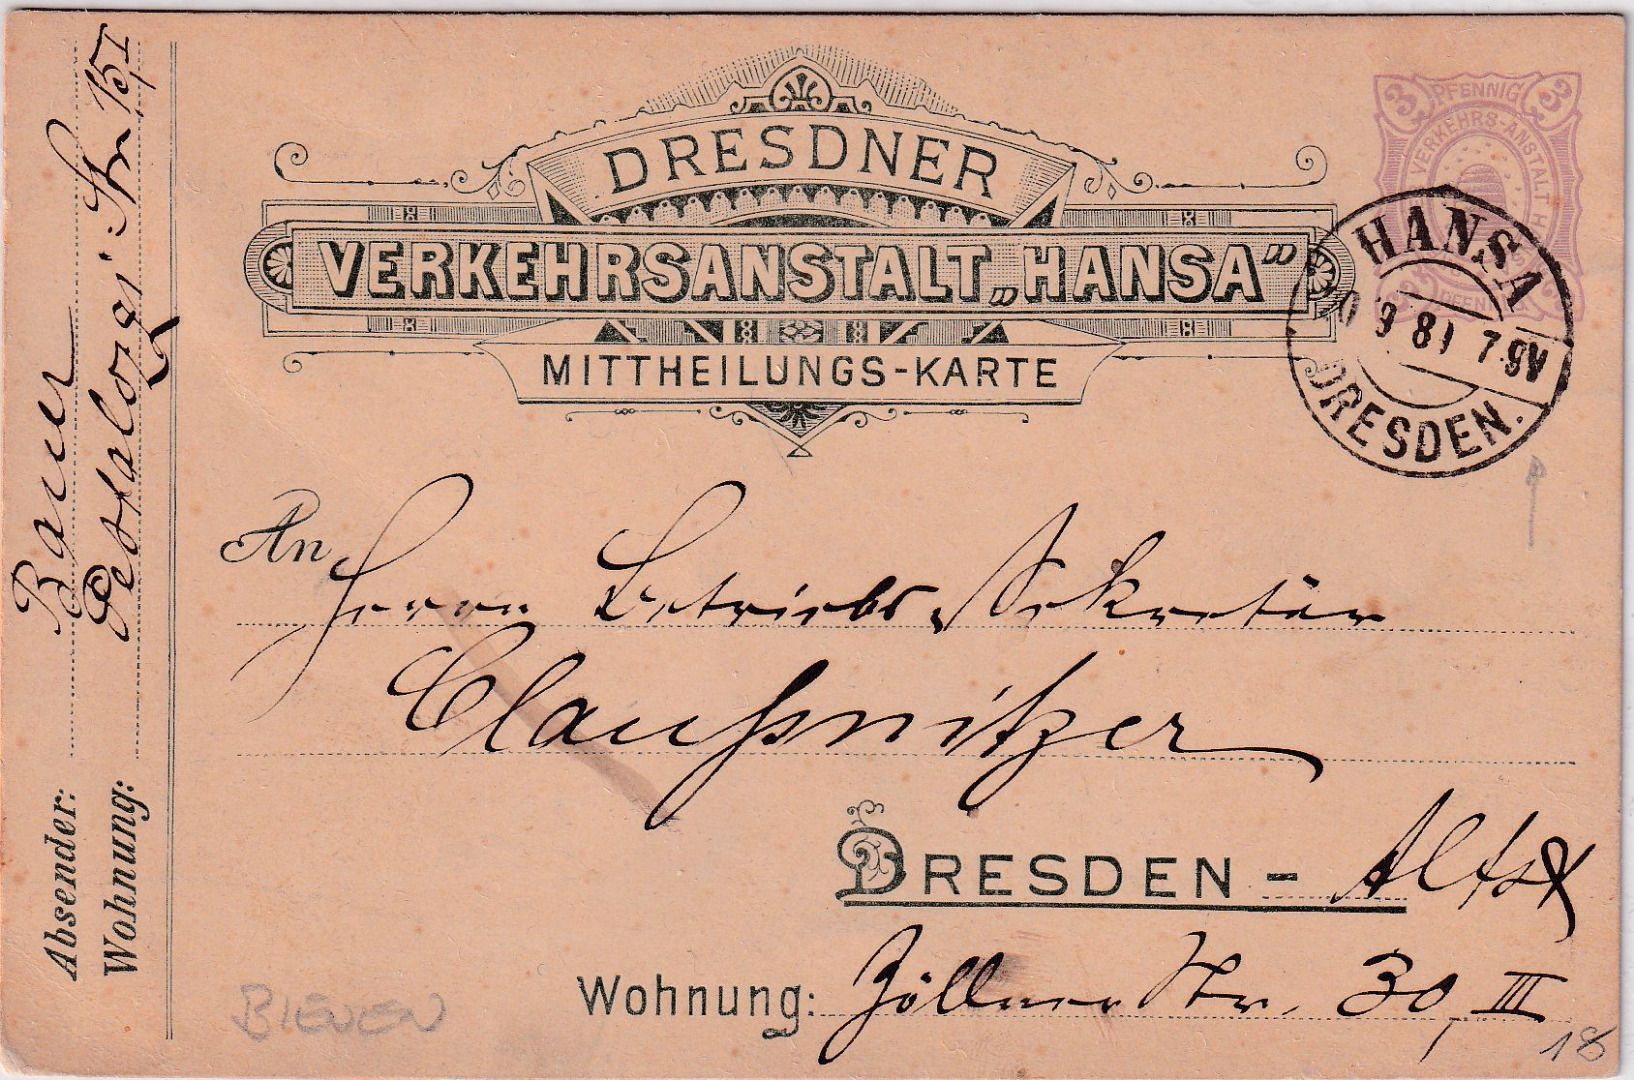 DRESDNER
VERKEHRSANSTALT „HANSA”
MITTHEILUNGS-KARTE
3 PFENNIG 3
VERKEHRS-ANSTALT HANSA
PFENNIG
HANSA
9 8 7.9V
DRESDEN.
An
Herrn Betriebs-Sekretär
Claußnitzer
DRESDEN - Altst
Wohnung: Zöllner Str. 30, III
Absender: Bauer
Wohnung: Pestalozzi Str 15 I
BIENEN
18